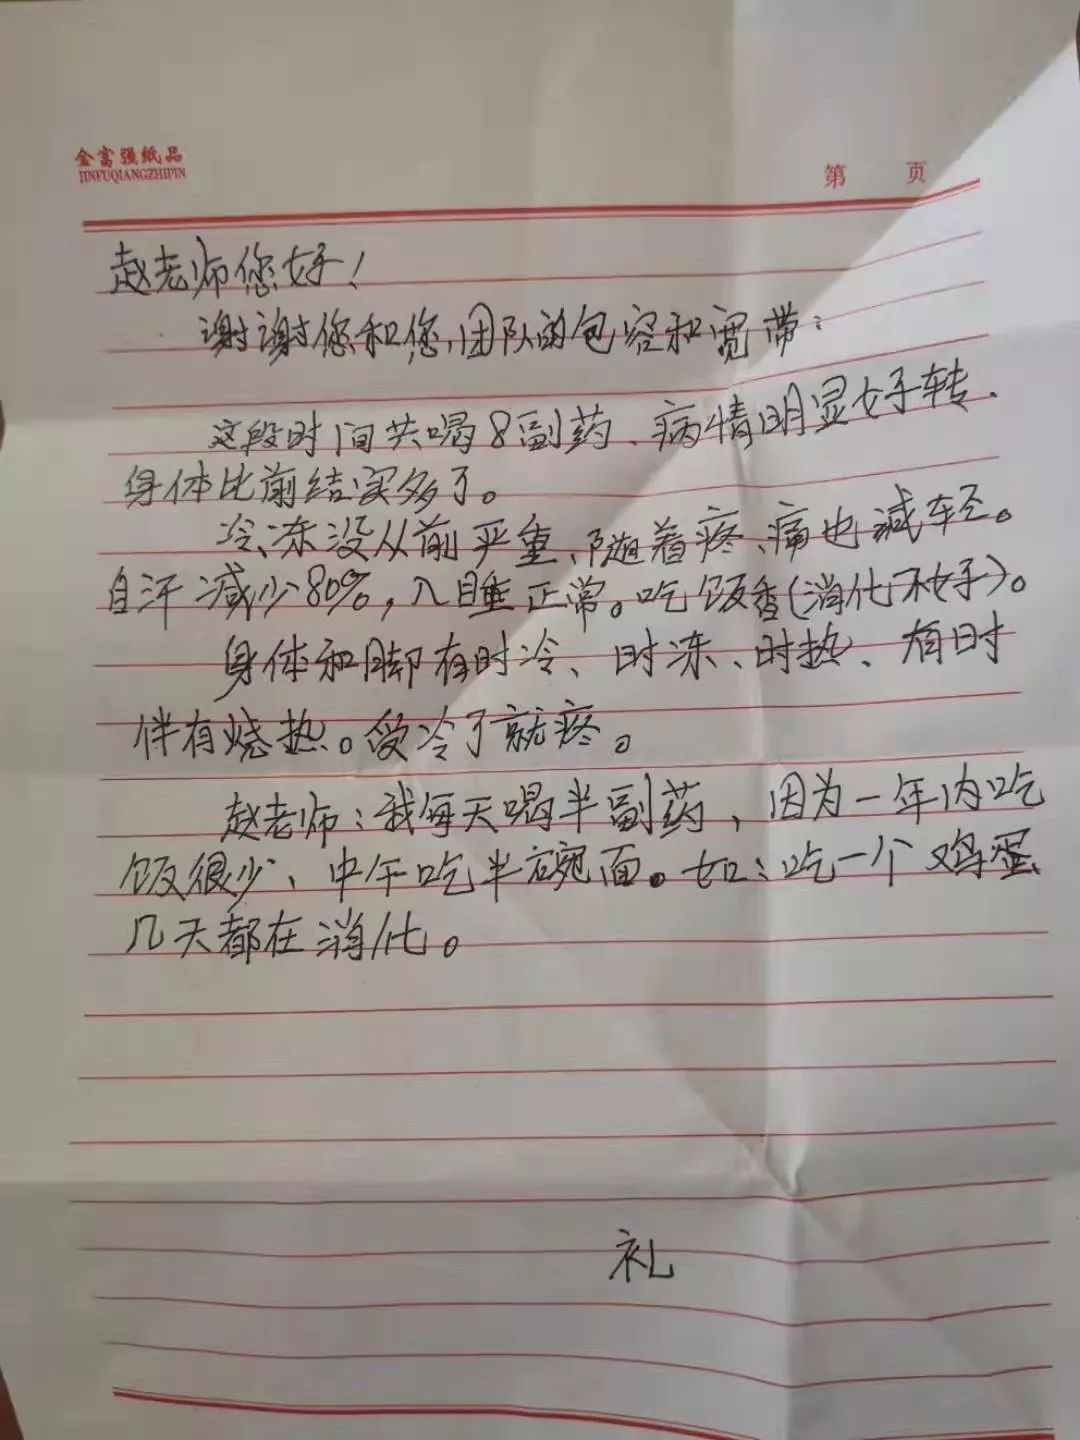 金富强纸品
JINFUQIANGZHIPIN
第 页
赵老师您好！
谢谢您和您团队的包容和宽带：
这段时间共喝8副药、病情明显好转、
身体比前结实多了。
冷、冻没从前严重、随着疼、痛也减轻。
自汗减少80%，入睡正常。吃饭香(消化不好)。
身体和脚有时冷、时冻、时热、有时
伴有烧热。受冷了就疼。
赵老师：我每天喝半副药，因为一年内吃
饭很少、中午吃半碗面。如：吃一个鸡蛋
几天都在消化。
礼